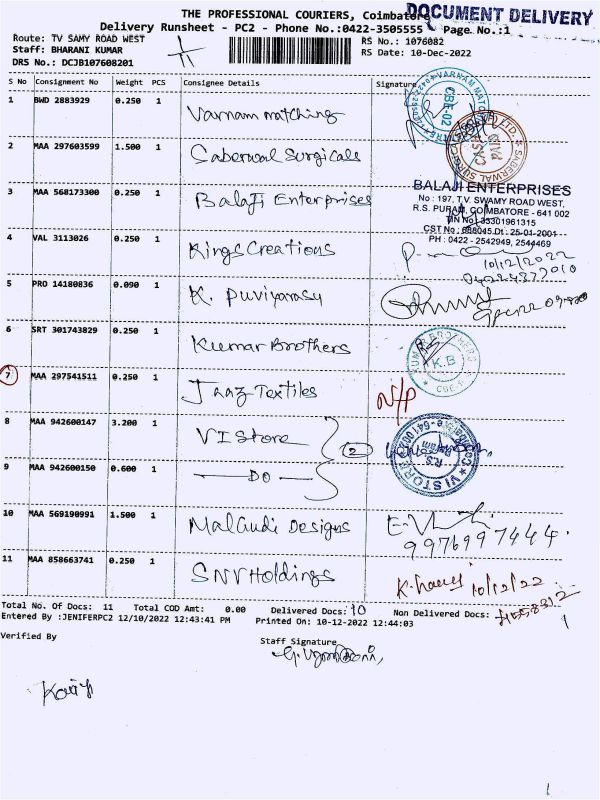 THE PROFESSIONAL COURIERS, Coimbatore
DOCUMENT DELIVERY
Delivery Runsheet - PC2 - Phone No.:0422-3505555 Page No.:1
Route: TV SAMY ROAD WEST
RS No.: 1076082
Staff: BHARANI KUMAR
RS Date: 10-Dec-2022
DRS No.: DCJB107608201
S No Consignment No Weight PCS Consignee Details Signature
1 BWD 2883929 0.250 1 Varnam matching
2 MAA 297603599 1.500 1 Saberwal Surgicals
3 MAA 568173300 0.250 1 Balaji Enterprises
BALAJI ENTERPRISES
No : 197, T.V. SWAMY ROAD WEST,
R.S. PURAM, COIMBATORE - 641 002
TIN No : 33301961315
CST No : 698045.Dt : 25-01-2001
PH : 0422 - 2542949, 2544469
4 VAL 3113026 0.250 1 Kings Creations
10/12/2022
5 PRO 14180836 0.090 1 K. Puviyarasy
6 SRT 301743829 0.250 1 Kumar Brothers
K.B
7 MAA 297541511 0.250 1 Jaaz Textiles N/P
8 MAA 942600147 3.200 1 VI Store 2
9 MAA 942600150 0.600 1 DO
10 MAA 569190991 1.500 1 Malgudi Designs
9976997444
11 MAA 858663741 0.250 1 SNV Holdings 10/12/22
Total No. Of Docs: 11 Total COD Amt: 0.00 Delivered Docs: 10 Non Delivered Docs: 1
Entered By :JENIFERPC2 12/10/2022 12:43:41 PM Printed On: 10-12-2022 12:44:03
Verified By Staff Signature